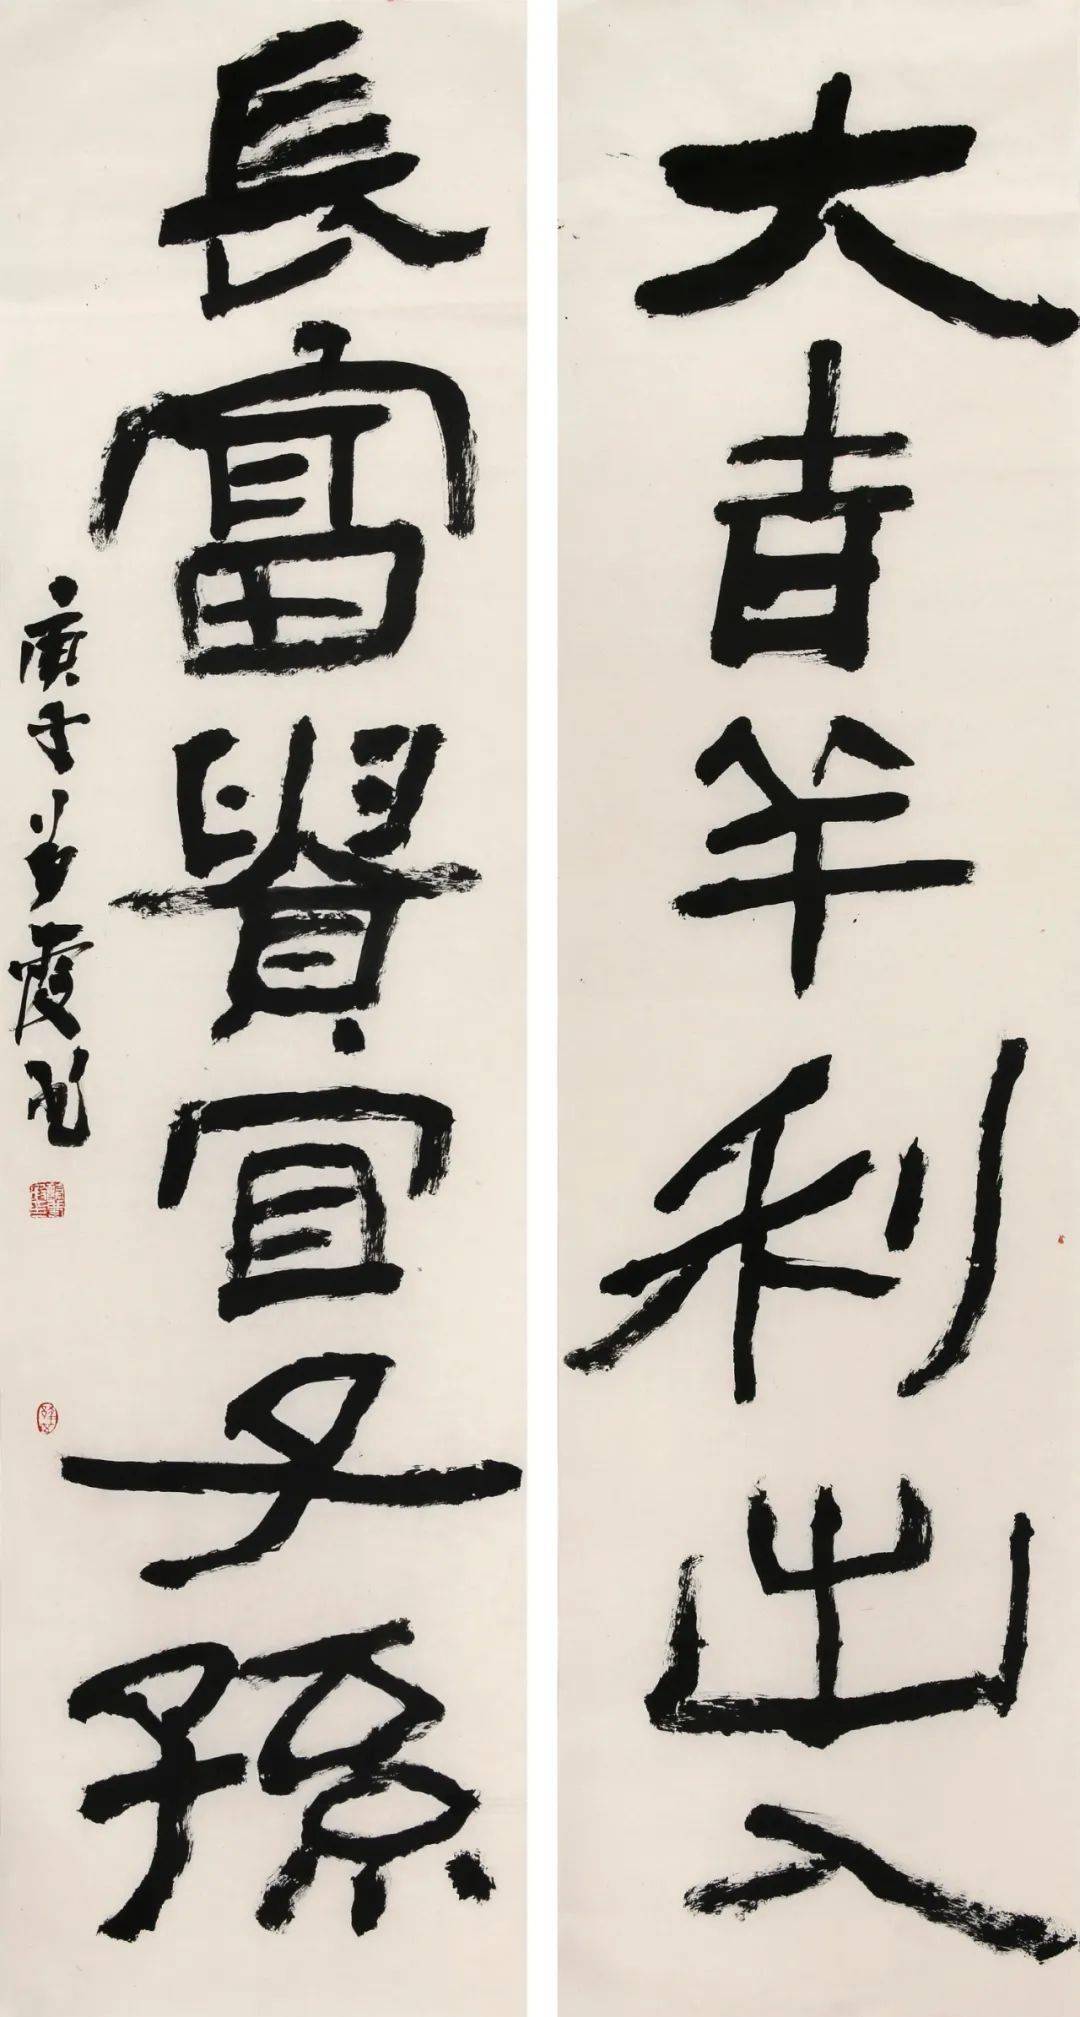 大吉羊利出入
長富貴宜子孫
庚子霞